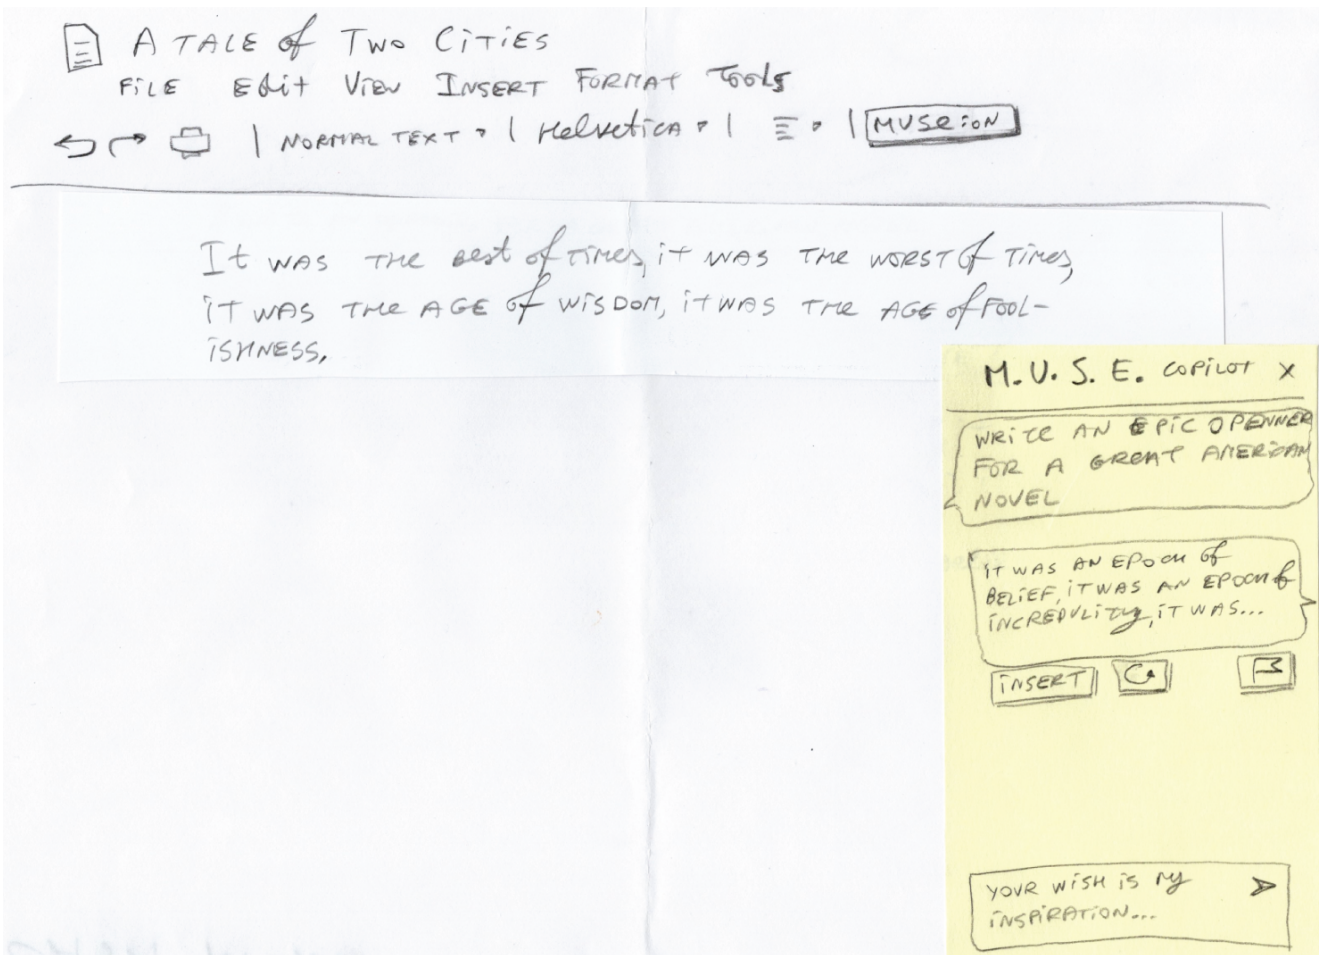 A TALE of Two CiTiES
FiLE Edit ViEW INSERT FORMAT Tools
| NORMAL TEXT | HelveticA | | MUSE:ON
It WAS THE Best of TiMES, it WAS THE WORST Of TiMES,
iT WAS THE AGE of WiSDOM, iT WAS THE AGE of FOOL-
iSHNESS.
M.U.S.E. COPiLOT X
WRiTE AN EPiC OPENNER
FOR A GREAT AMERiCAN
NOVEL
iT WAS AN EPOCH Of
BELiEF, iT WAS AN EPOCH Of
iNCREDULiTy, iT WAS...
iNSERT
YOUR WiSH iS My
iNSPiRATiON...